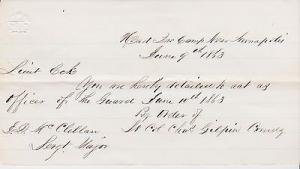 Head Drs Camp Near Annapolis
June 9th 1863
Lieut Eck
You are hereby detailed to act as
officer of the Guard June 10th 1863
By Order of
Lt Col Chas Gilpin Comdg
McClellan
Sergt Major